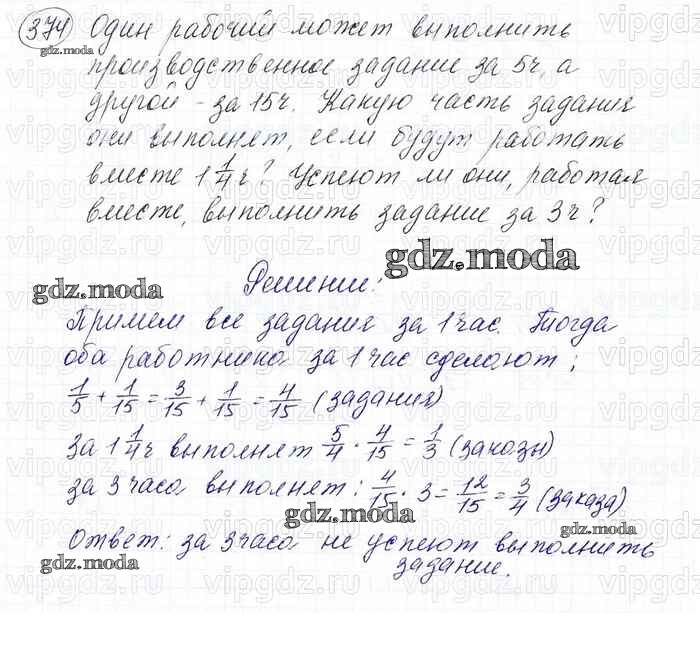 374 Один рабочий может выполнить
gdz.moda
производственное задание за 5ч, а
другой - за 15ч. Какую часть задания
они выполнят, если будут работать
вместе 1 1/4 ч? Успеют ли они, работая
вместе, выполнить задание за 3ч?
gdz.moda
Решение:
gdz.moda
Примем все задания за 1 час. Тогда
оба работника за 1 час сделают;
1/5 + 1/15 = 3/15 + 1/15 = 4/15 (задания)
За 1 1/4 ч выполнят 5/4 · 4/15 = 1/3 (заказы)
за 3 часа выполнят: 4/15 · 3 = 12/15 = 3/4 (заказа)
gdz.moda
gdz.moda
Ответ: за 3 часа не успеют выполнить
gdz.moda
задание.
gdz.moda
vipgdz.ru